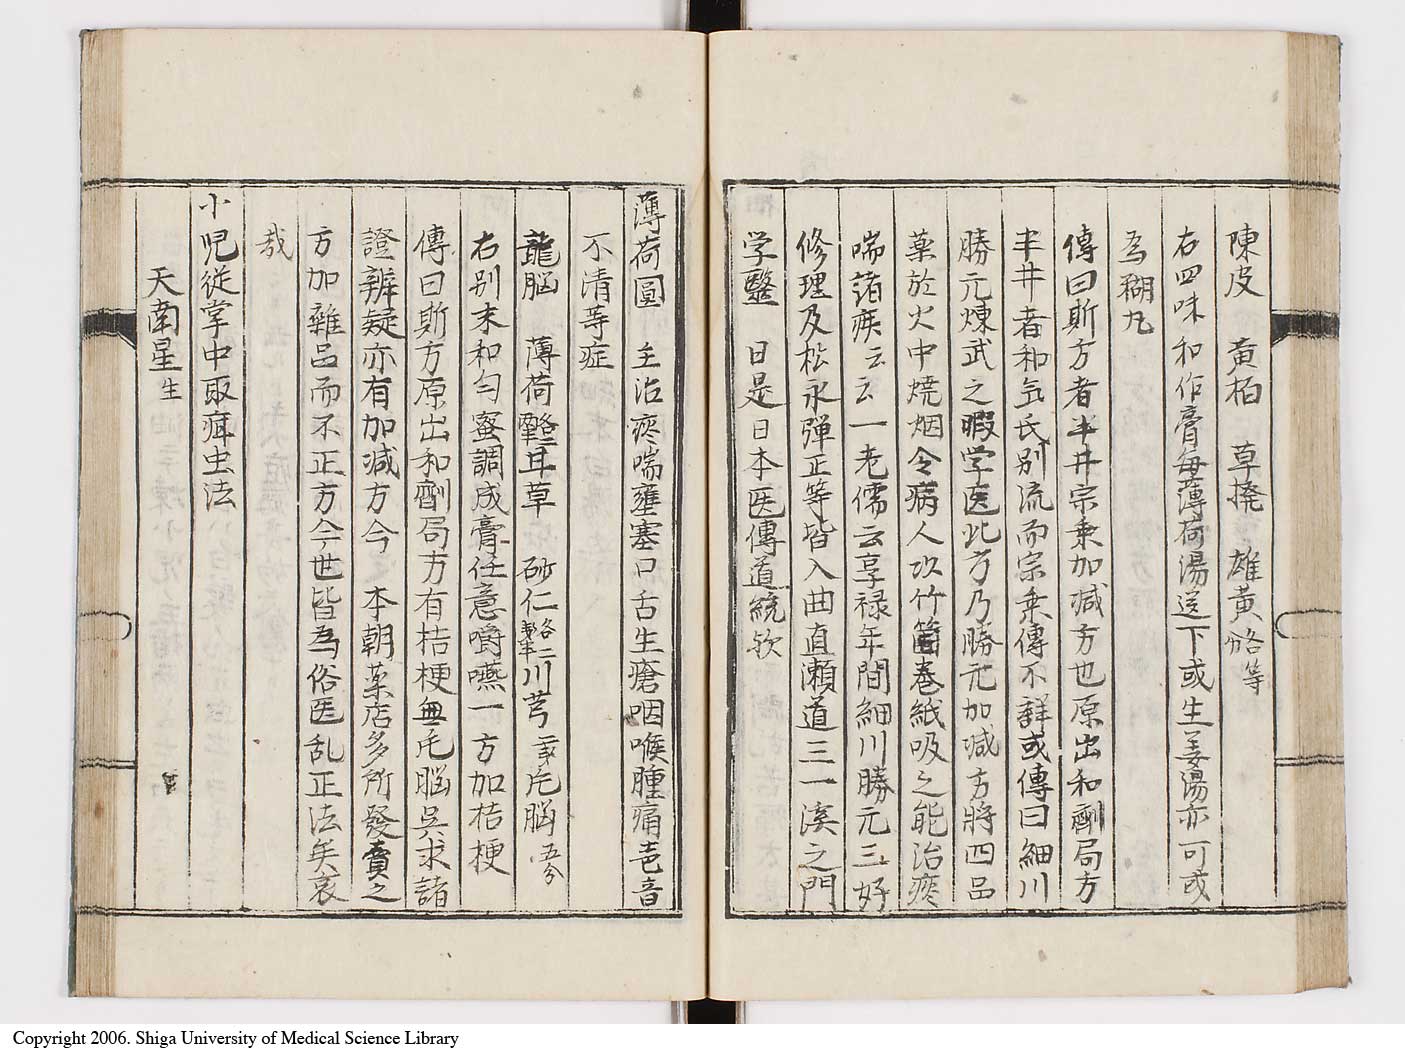 陳皮 黄柏 草撥 雄黄 各等
右四味和作膏毎薄荷湯送下或生姜湯亦可或
為糊丸
傳曰斯方者半井宗乗加減方也原出和劑局方
半井者和氣氏別流而宗乗傳不詳或傳曰細川
勝元煉武之暇学医此方乃勝元加減方將四品
薬於火中焼烟令病人以竹筒巻紙吸之能治痰
喘諸疾云云一老儒云享禄年間細川勝元三好
修理及松永弾正等皆入曲直瀬道三一溪之門
学醫 日是日本医傳道統歟
薄荷圓 主治痰喘壅塞口舌生瘡咽喉腫痛声音
不清等症
龍脳 薄荷 各二 耳草 砂仁 各二 川芎 片脳 五分
右別末和匀蜜調成膏任意嚼嚥一方加桔梗
傳曰斯方原出和劑局方有桔梗無片脳呉求諸
證辨疑亦有加減方今 本朝薬店多所發賣之
方加雜品而不正方今世皆為俗医乱正法矣哀
哉
小児從掌中取疳虫法
天南星 生
Copyright 2006. Shiga University of Medical Science Library